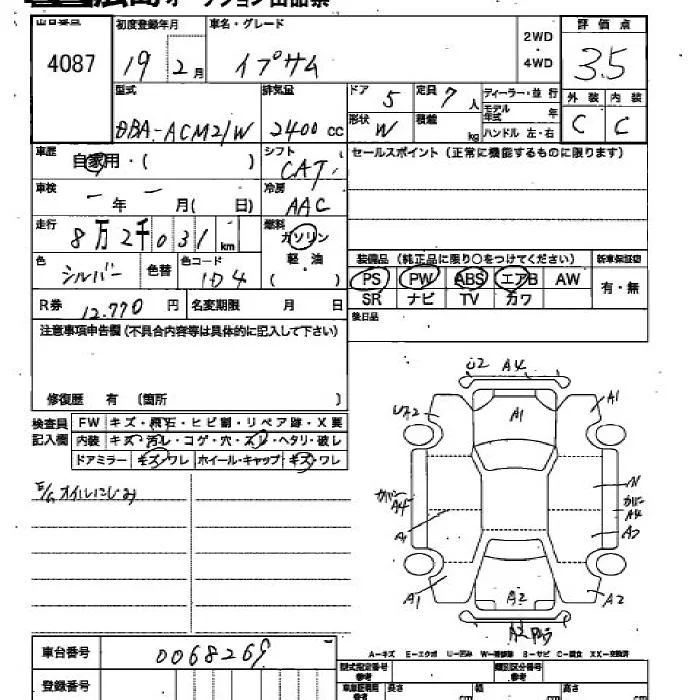 広島オークション出品票
出品番号 初度登録年月 車名・グレード 2WD・4WD 評価点
4087 19 2月 イプサム 3.5
型式 排気量 ドア 5 定員 7人 ディーラー・並行 外装 内装
DBA-ACM21W 2400cc 形状 W 積載 kg モデル年式 年 C C
ハンドル 左・右
車歴 自家用・( ) シフト CAT セールスポイント(正常に機能するものに限ります)
車検 一年 一月( 日) 冷房 AAC
走行 8万2千031km 燃料 ガソリン 軽・油
色 シルバー 色替 色コード 1D4 装備品(純正品に限り○をつけてください) 新車保証書
PS PW ABS エアB AW 有・無
SR ナビ TV カワ
R券 12.770円 名変期限 月 日 後日品
注意事項申告欄(不具合内容等は具体的に記入して下さい)
修復歴 有 〔箇所 〕
検査員記入欄 FW キズ・飛石・ヒビ割・リペア跡・X要
内装 キズ・汚レ・コゲ・穴・スレ・ヘタリ・破レ
ドアミラー キズ・ワレ ホイール・キャップ キズ・ワレ
E/G オイルにじみ
U2 A4
A1
A1
A4
A1
A2
A1
A2
A2
車台番号 0068269
登録番号
A-キズ E-エクボ U-凹み W-補修跡 S-サビ C-腐食 XX-交換済
型式指定番号 参考 類別区分番号 参考
長さ cm 幅 cm 高さ cm